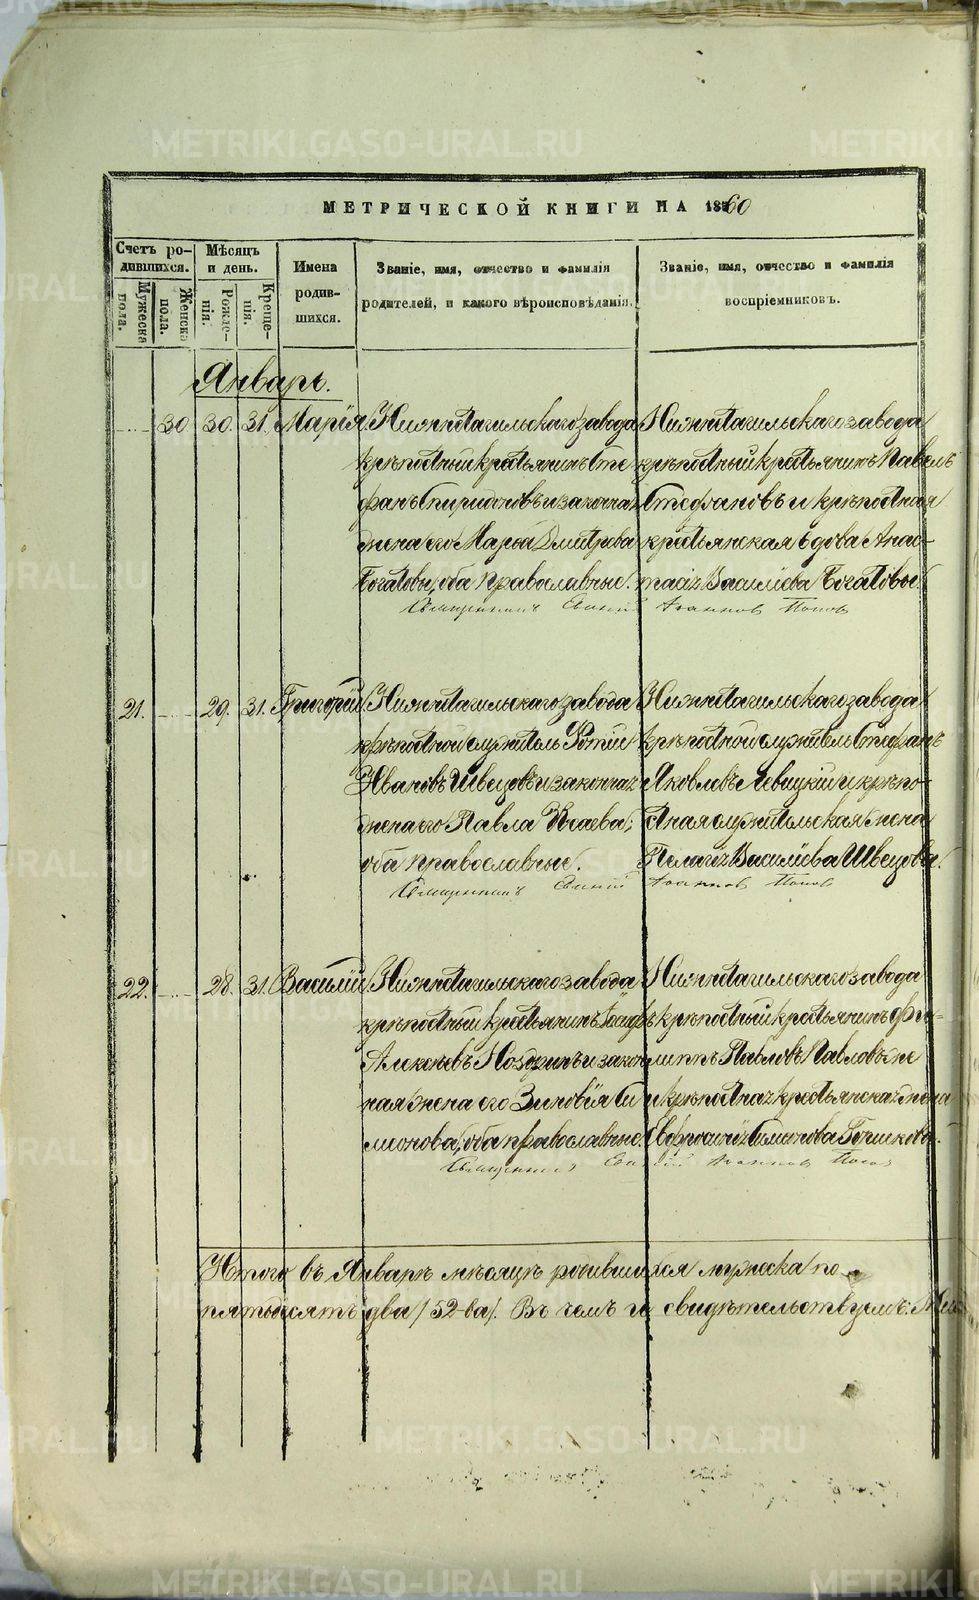 METRIKI.GASO-URAL.RU
МЕТРИЧЕСКОЙ КНИГИ НА 1860
Счетъ родившихся.
Мужеска пола.
Женска пола.
Мѣсяцъ и день.
Рожденія.
Крещенія.
Имена родившихся.
Званіе, имя, отчество и фамилія
родителей, и какого вѣроисповѣданія.
Званіе, имя, отчество и фамилія
воспріемниковъ.
Январь.
30 30. 31. Марія
Нижнетагильскаго завода
крѣпостный крестьянинъ Сте
фанъ Спиридоновъ и законная
жена его Марья Дмитрева
Богатовы, оба православные.
Нижнетагильскаго завода
крѣпостный крестьянинъ Павелъ
Стефановъ и крѣпостная
крестьянская вдова Анас-
тасія Василіева Богатовы.
Священникъ Іоаннов Попов
21. 29. 31. Григорій
Нижнетагильскаго завода
крѣпостной служитель Фотій
Ивановъ Швецовъ и законная
жена его Павла Исаева;
оба православные.
Нижнетагильскаго завода
крѣпостной служитель Стефанъ
Яковлевъ Левицкій и крѣпо-
стная служительская жена
Пелагія Василіева Швецова.
Священникъ Іоаннов Попов
22. 28. 31. Василій
Нижнетагильскаго завода
крѣпостный крестьянинъ Іосифъ
Алексѣевъ Ноздринъ и закон
ная жена его Зиновія Си
меонова, оба православные.
Нижнетагильскаго завода
крѣпостный крестьянинъ Фи-
липпъ Павловъ
и крѣпостная крестьянская жена
Евфросинія Симеонова
Священникъ Іоаннов Попов
Итого въ Январѣ мѣсяцѣ родившихся мужеска по
пятьдесятъ два /52-ва/. Въ чемъ и свидѣтельствуемъ: